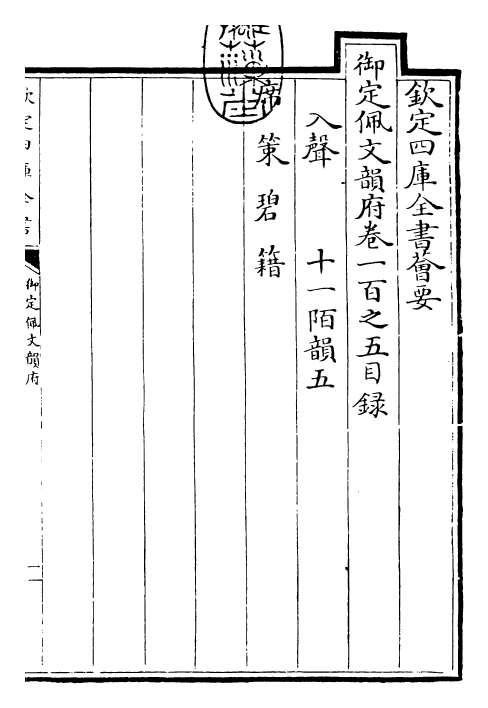 欽定四庫全書薈要
御定佩文韻府卷一百之五目録
入聲 十一陌韻五
席 策 碧 籍
欽定四庫全書
御定佩文韻府
一